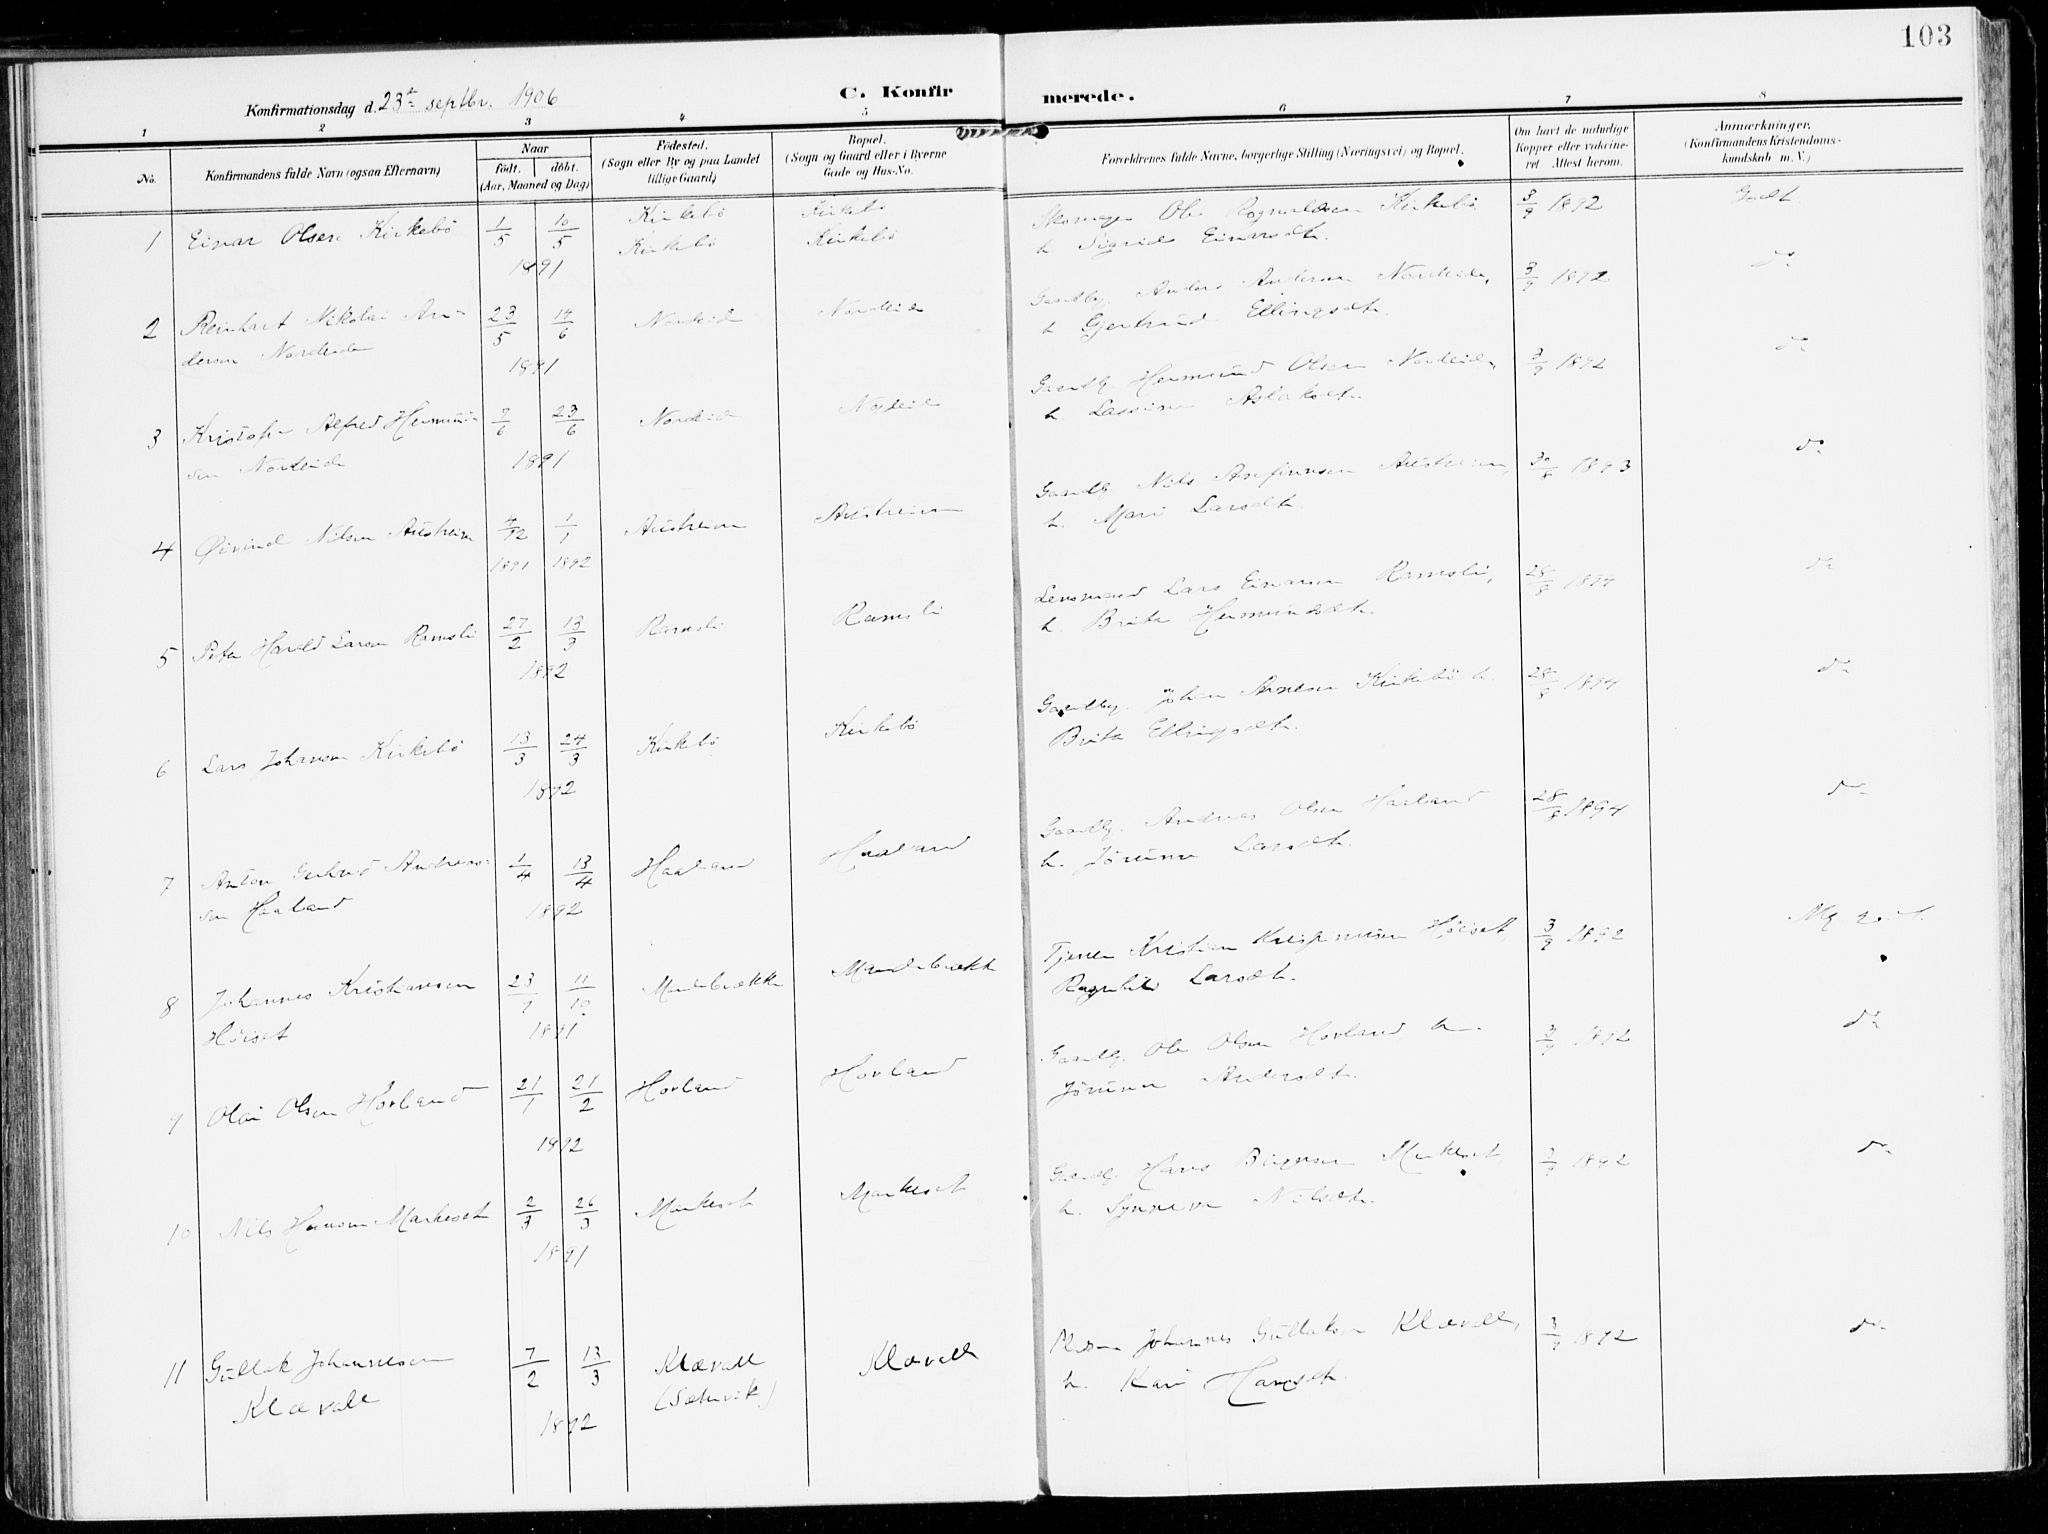 103
Konfirmationsdag d. 23de septbr. 1906
C. Konfirmerede.
1 2 3 4 5 6 7 8
No.
Konfirmandens fulde Navn (ogsaa Efternavn)
Naar
født. døbt.
(Aar, Maaned og Dag)
Fødested.
(Sogn eller By og paa Landet
tillige Gaard)
Bopæl.
(Sogn og Gaard eller i Byerne
Gade og Hus-No.
Forældrenes fulde Navne, borgerlige Stilling (Næringsvei) og Bopæl.
Om havt de naturlige
Kopper eller vakcine-
ret Attest herom.
Anmærkninger.
(Konfirmandens Kristendoms-
kundskab m. V.)
1 Einar Olsen Kirkebø 1/5 10/5 1891 Kirkebø Kirkebø Kirkebø Kirkebø
Skomager Ole Rognaldsen Kirkebø
h. Sigrid Einarsdtr. 3/9 1892 Godt
2 Reinhart Nikolai An-
dersen Nordeide 23/5 14/6 1891 Nordeide Nordeide
Gaardbr. Anders Andersen Nordeide,
h. Gjertrud Ellingsdtr. 3/9 1892 do
3 Kristofer Alfred Hermund-
sen Nordeide 7/6 23/6 1891 Nordeide Nordeide
Gaardb. Hermund Olsen Nordeide,
h. Aslaksdtr. 3/9 1892 do
4 Øivind Nilsen Austreim 4/12 1891 1/1 1892 Austreim Austreim
Gaardb. Nils Arnfinnsen Austreim,
h. Mari Larsdtr. 30/8 1893 do
5 Peter Harald Larsen Ramsli 27/2 13/3 1892 Ramsli Ramsli
Lensmand Lars Einarsen Ramsli,
h. Brita Hermundsdtr. 28/8 1894 do
6 Lars Johansen Kirkebø 13/3 24/3 1892 Kirkebø Kirkebø
Gaardbr. Johan Arnesen Kirkebø h.
Brita Ellingsdtr. 28/8 1894 do
7 Anton Gerhard Andreas-
sen Haaland 1/4 13/4 1892 Haaland Haaland
Gaardb. Andreas Olsen Haaland
h. Jørunn Larsdtr. 28/8 1894 do
8 Johannes Kristiansen
Høiset 23/9 11/10 1891 Mandebrække Mandebrække
Tjener Kristian Høiset
Ragnhild Larsdtr. 3/9 1892 Mg godt.
9 Olai Olsen Hovland 21/1 21/2 1892 Hovland Hovland
Gaardb. Ole Olsen Hovland h.
Jørunn Andersdtr. 3/9 1892 do
10 Nils Hansen Markeset 2/3 26/3 1891 Markeset Markeset
Gaardb. Hans Birgersen Markeset
h. Synneva Nilsdtr. 3/9 1892 do
11 Gullak Johannesen
Klævall 7/2 13/3 1892 Klævall
(Sætervik) Klævall
Johannes Gullaksen Klævall,
h. Kari Hansdtr. 3/9 1892 do